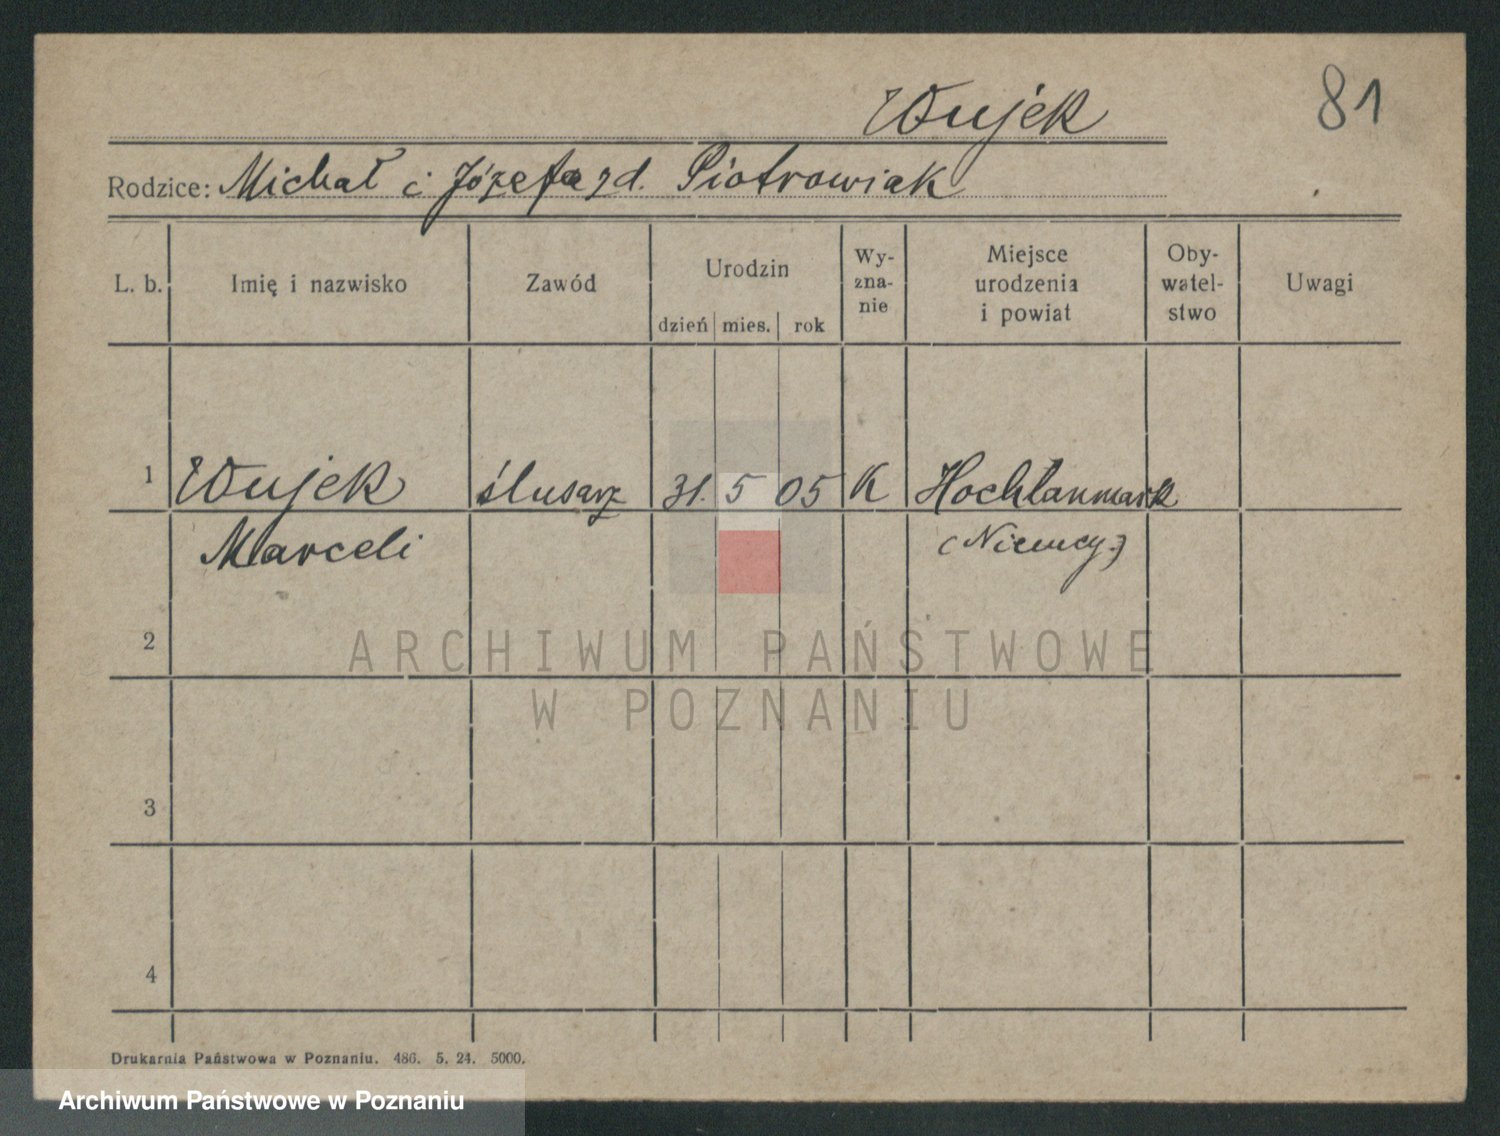 Wujek
81
Rodzice: Michał i Józefa zd. Piotrowiak
L. b.
Imię i nazwisko
Zawód
Urodzin
dzień mies. rok
Wy-
zna-
nie
Miejsce
urodzenia
i powiat
Oby-
watel-
stwo
Uwagi
1 Wujek ślusarz 31. 5 05 K Hochlanmark
Marceli (Niemcy)
2
3
4
ARCHIWUM PAŃSTWOWE
W POZNANIU
Drukarnia Państwowa w Poznaniu. 486. 5. 24. 5000.
Archiwum Państwowe w Poznaniu